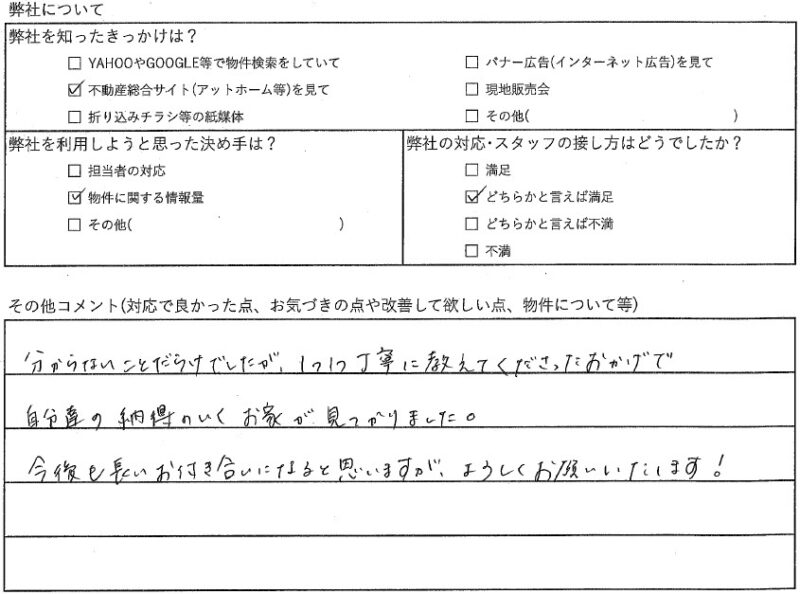 弊社について
弊社を知ったきっかけは?
☐ YAHOOやGOOGLE等で物件検索をしていて
☐ バナー広告(インターネット広告)を見て
☑ 不動産総合サイト(アットホーム等)を見て
☐ 現地販売会
☐ 折り込みチラシ等の紙媒体
☐ その他( )
弊社を利用しようと思った決め手は?
☐ 担当者の対応
☑ 物件に関する情報量
☐ その他( )
弊社の対応・スタッフの接し方はどうでしたか?
☐ 満足
☑ どちらかと言えば満足
☐ どちらかと言えば不満
☐ 不満
その他コメント(対応で良かった点、お気づきの点や改善して欲しい点、物件について等)
分からないことだらけでしたが、1つ1つ丁寧に教えてくださったおかげで
自分達の納得のいくお家が見つかりました。
今後も長いお付き合いになると思いますが、よろしくお願いいたします!